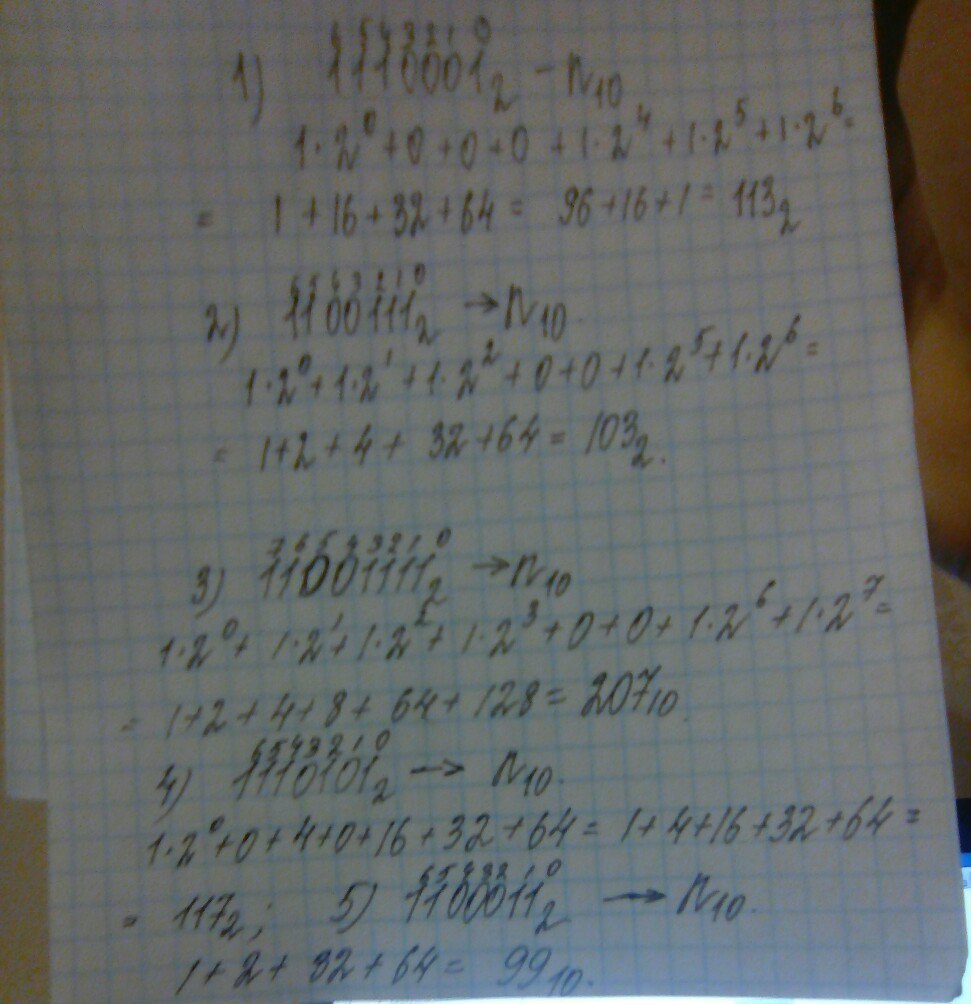 6 5 4 3 2 1 0
1) 1110001₂ - n₁₀
1·2⁰+0+0+0+1·2⁴+1·2⁵+1·2⁶=
= 1+16+32+64= 96+16+1= 113₂
6 5 4 3 2 1 0
2) 1100111₂ → n₁₀.
1·2⁰+1·2¹+1·2²+0+0+1·2⁵+1·2⁶=
= 1+2+4+ 32+64= 103₂.
7 6 5 4 3 2 1 0
3) 11001111₂ → n₁₀
1·2⁰+ 1·2¹+1·2²+ 1·2³+0+0+ 1·2⁶+1·2⁷=
= 1+2+4+8+ 64+128= 207₁₀.
6 5 4 3 2 1 0
4) 1110101₂ → n₁₀.
1·2⁰+0+4+0+16+32+64= 1+4+16+32+64=
6 5 4 3 2 1 0
= 117₂; 5) 1100011₂ → n₁₀.
1+2+32+64= 99₁₀.